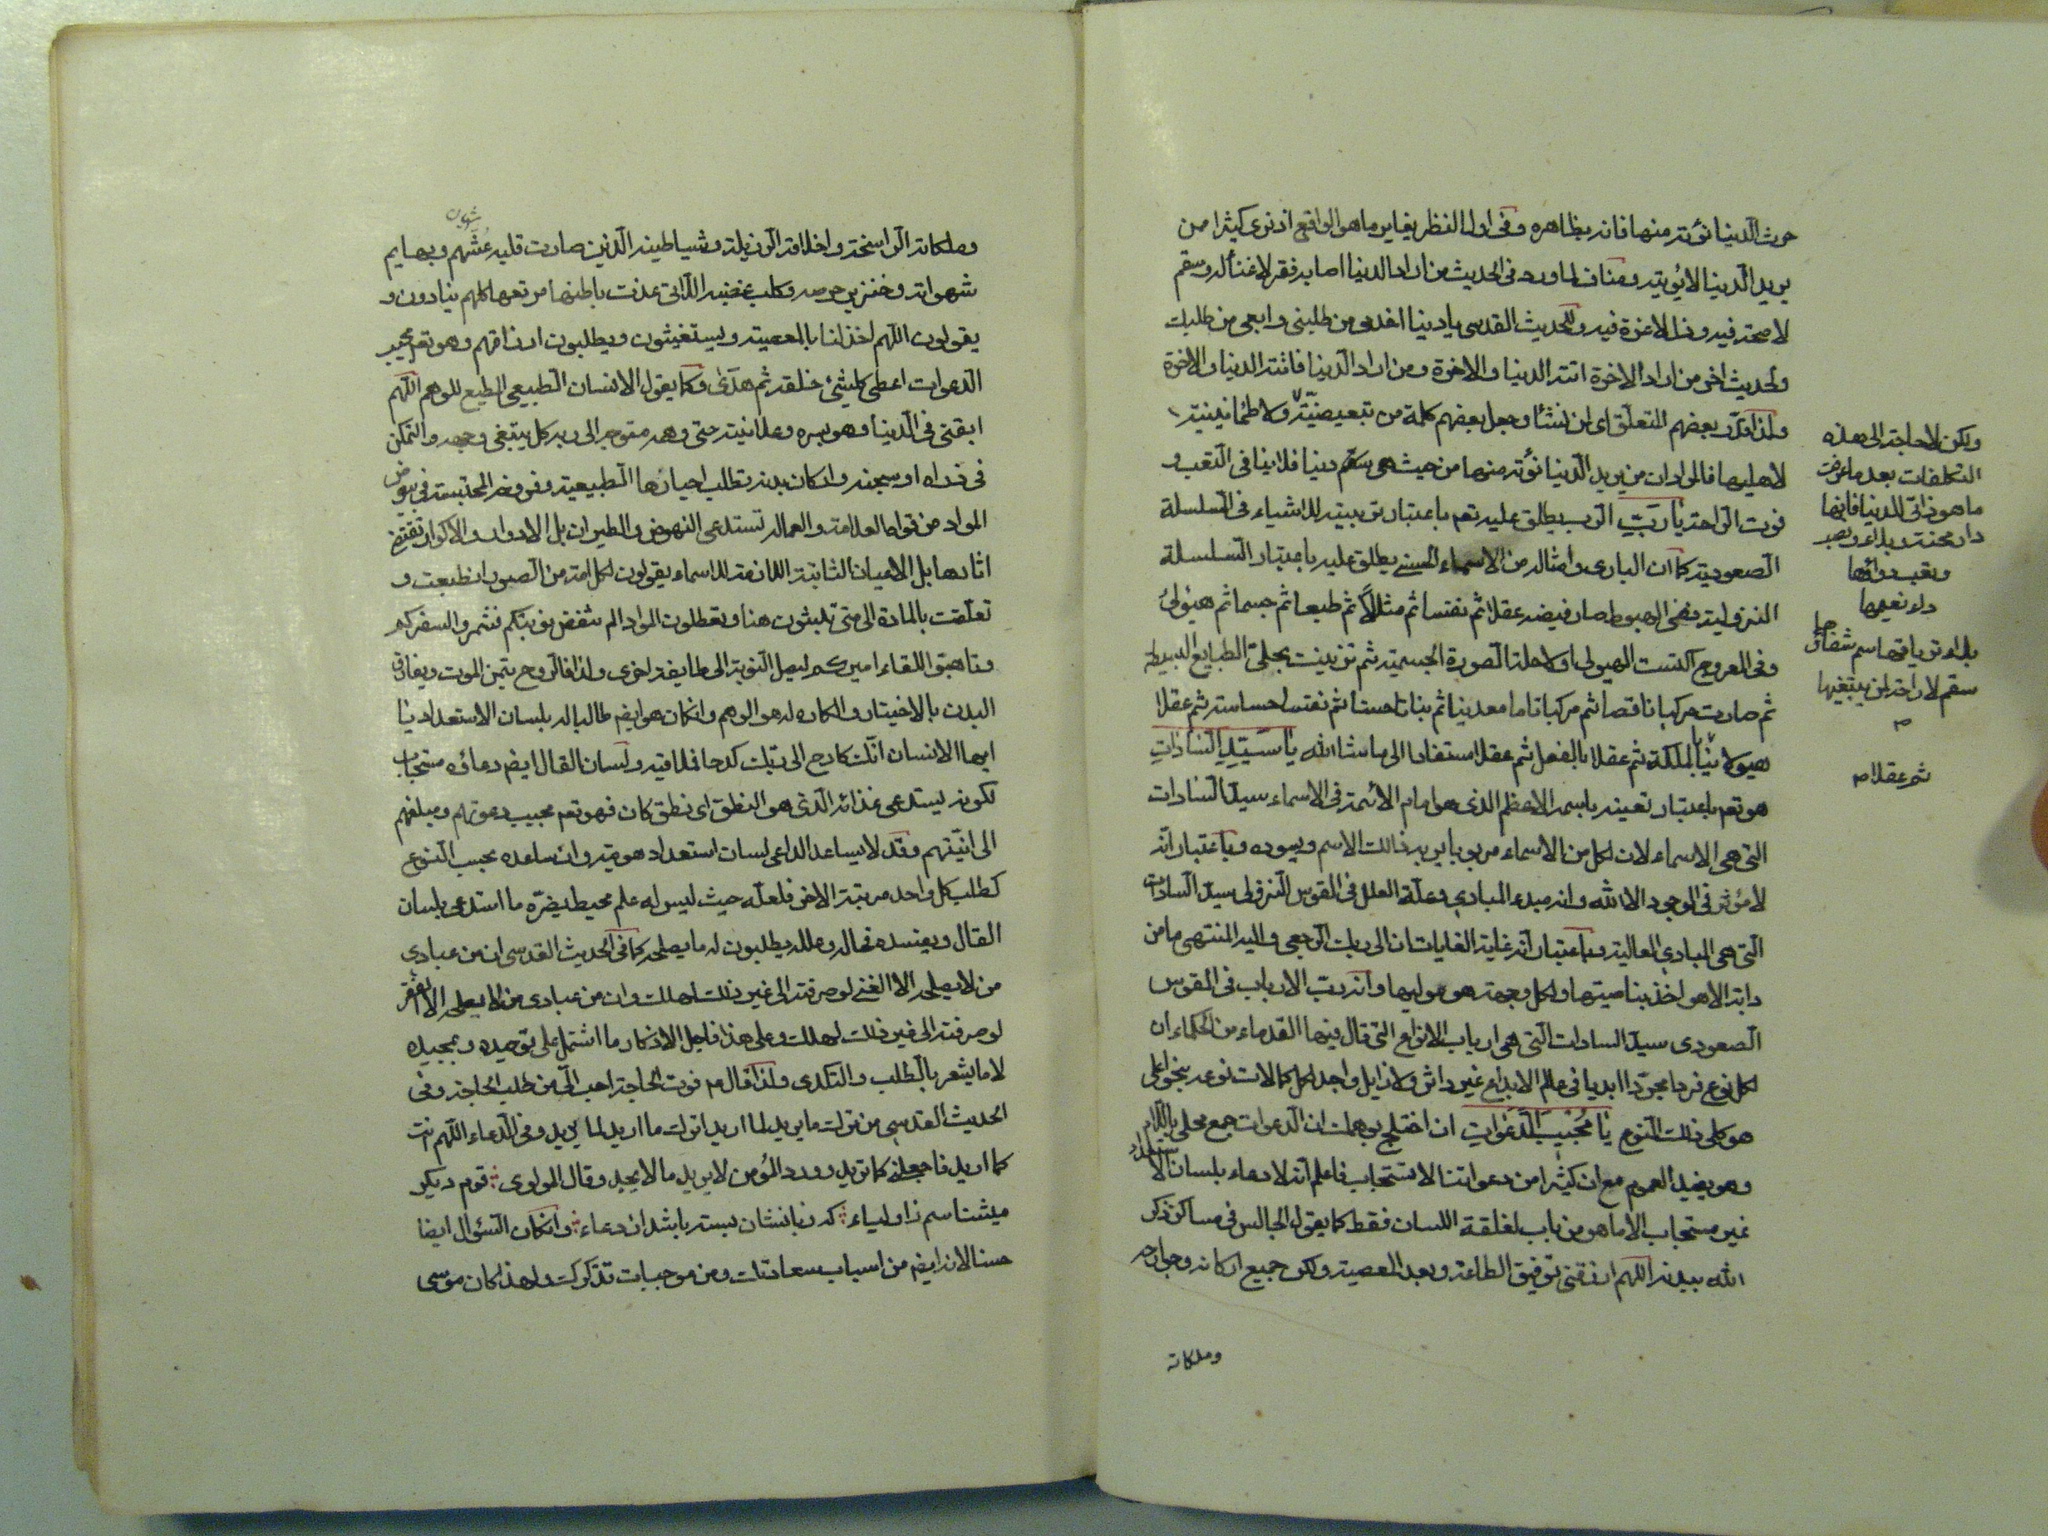 حرث الدنيا نؤته منها فانه بظاهره وفى اول النظر يغاير ما هو الواقع اذ نرى كثيرا ممن
يريد الدنيا لا يؤتيه ومناف لما ورد فى الحديث من اراد الدنيا اصابه فقر لا غناء له وسقم
لا صحة فيه وذل لا عزة فيه وللحديث القدسى يا دنيا اخدمى من طلبنى وابعى من طلبك
ولحديث اخر من اراد الاخرة اتته الدنيا والاخرة ومن اراد الدنيا فاتته الدنيا والاخرة
ولذا قدر بعضهم المتعلق اى ان نشا وجعل بعضهم كلمة من تبعيضية ولا طمأنينة
لاهليها فالمراد ان من يريد الدنيا نؤته منها من حيث هى دنيا فلاينافى التعب و
فوت الراحة يا رب الرب يطلق عليه تعم باعتبار تربيته للاشياء فى السلسلة
الصعودية كما ان البارى وامثاله من الاسماء الحسنى يطلق عليه باعتبار السلسلة
النزولية ففى الهبوط صار فيضه عقلا ثم نفسا ثم مثالا ثم طبعا ثم جسما ثم هيولى
وفى العروج اكتست الهيولى اولا حلة الصورة الجسمية ثم تزينت بحلى الطبايع البسيطة
ثم صارت مركبا ناقصا ثم مركبا تاما معدنيا ثم نباتا حسنا ثم نفسا حساسة ثم عقلا
هيولانيا بالملكة ثم عقلا بالفعل ثم عقلا مستفادا الى ما شاء الله يا سيد السادات
هو تعم باعتبار تعينه باسمه الاعظم الذى هو امام الائمة فى الاسماء سيد السادات
التى هى الاسماء لان لكل من الاسماء مربوبا يربه ذلك الاسم ويسوده وباعتبار انه
لا مؤثر فى الوجود الا الله وانه مبدء المبادى وعلة العلل فى القوس النزولى سيد السادات
التى هى المبادى العالية وباعتبار انه غاية الغايات ان الى ربك الرجعى واليه المنتهى ما من
دابة الا هو اخذ بناصيتها ولكل وجهة هو موليها وانه رب الارباب فى القوس
الصعودى سيد السادات التى هى ارباب الانواع التى قال فيها القدماء من الحكماء ان
لكل نوع فردا مجردا ابديا فى عالم الابداع غير داثر ولا زايل واجد لكل كمالات نوعه بنحو اعلى
هو كلى ذلك النوع يا مجيب الدعوات ان اختلج بوهمك ان الدعوات جمع محلى باللام
وهو يفيد العموم مع ان كثيرا من دعواتنا لا تستجاب فاعلم انه لا دعاء بلسان الاستعداد
غير مستجاب الا ما هو من باب لقلقة اللسان فقط كما يقول الجالس فى مساكن ذكر
الله ببدنه اللهم ارزقنى توفيق الطاعة وبعد المعصية ولكن جميع اركانه وجوارحه
وملكاته
ولكن لا حاجة الى هذه
التكلفات بعد ما عرفت
ما هو ذاتى للدنيا فانها
دار محنة وبلاء و
وتعب دوائها
داء نعيمها
بلاء ترياقها سم شفاؤها
سقم لا راحة لمن يبتغيها
م
ثم عقلا م
وملكاته الراسخة واخلاقه الرذيلة وشياطينه الذين صارت قلبه عشهم وبهايم
شهواته وخنزير حرصه وكلب غضبه اللاتى عدت باطنها مرتعها كلهم ينادون و
يقولون اللهم اخذلنا بالمعصية ويستغيثون ويطلبون ارزاقهم وهو تعم مجيب
الدعوات اعطى كل شئ خلقه ثم هدى وكما يقول الانسان الطبيعى المطيع للوهم اللهم
ابقنى فى الدنيا وهو بسره وعلانيته حتى وهمه متوجه الى ربه كل يبتغى وجهه والتمكن
فى داره او سجنه وان كان بدنه تطلب احيازها الطبيعية وفروخه المحتبسة فى بيوض
المواد من قواه العلامة والعمالة تستدعى النهوض والطيران بل الادوار والاكوار تقتضى
اثارها بل الاعيان الثابتة اللازمة للاسماء يقولون لكل امة من الصور انطبعت و
تعلقت بالمادة الى متى تلبثون هنا وتعطلون المواد الم تنقض نوبتكم فشمروا لسفركم
وتاهبوا للقاء اميركم ليصل النوبة الى طايفة اخرى ولذا فالروح يتمنى الموت ويفارق
البدن بالاختيار والكاره له هو الوهم وانكان هو ايضم طالبا له بلسان الاستعداد يا
ايها الانسان انك كادح الى ربك كدحا فملاقيه ولسان القال ايضم دعائه مستجاب
لكونه يستدعى غذائه الذى هو النطق اى نطق كان فهو تعم مجيب دعوتهم ومبلغهم
الى امنيتهم وقد لا يساعد الداعى لسان استعداد هويته وان ساعده بحسب النوع
كطلب كل واحد مرتبة الاخر فلعله حيث ليس له علم محيط يضره ما استدعى بلسان
القال ويفسده فحاله وعلله يطلبون له ما يصلحه كما فى الحديث القدسى ان من عبادى
من لا يصلحه الا الغنى لو صرفته الى غير ذلك لهلك وان من عبادى من لا يصلحه الا الفقر
لو صرفته الى غير ذلك لهلك وعلى هذا فاجل الاذكار ما اشتمل على توحيده وتمجيده
لا ما يشعر بالطلب والتكدى ولذا قال م فوت الحاجة احب الى من طلب الحاجة وفى
الحديث القدسى من ترك ما يريد لما اريد اترك ما اريد لما يريد وفى الدعاء اللهم انت
كما اريد فاجعلنى كما تريد وورد المؤمن لا يريد ما لا يجد وقال المولوى قوم ديكر
ميشناسم ز اولياء كه زبانشان بسته باشد از دعاء وانكان السؤال ايضا
حسنا لانه ايضم من اسباب سعادتك ومن موجبات تذكرك ولهذا كان موسى